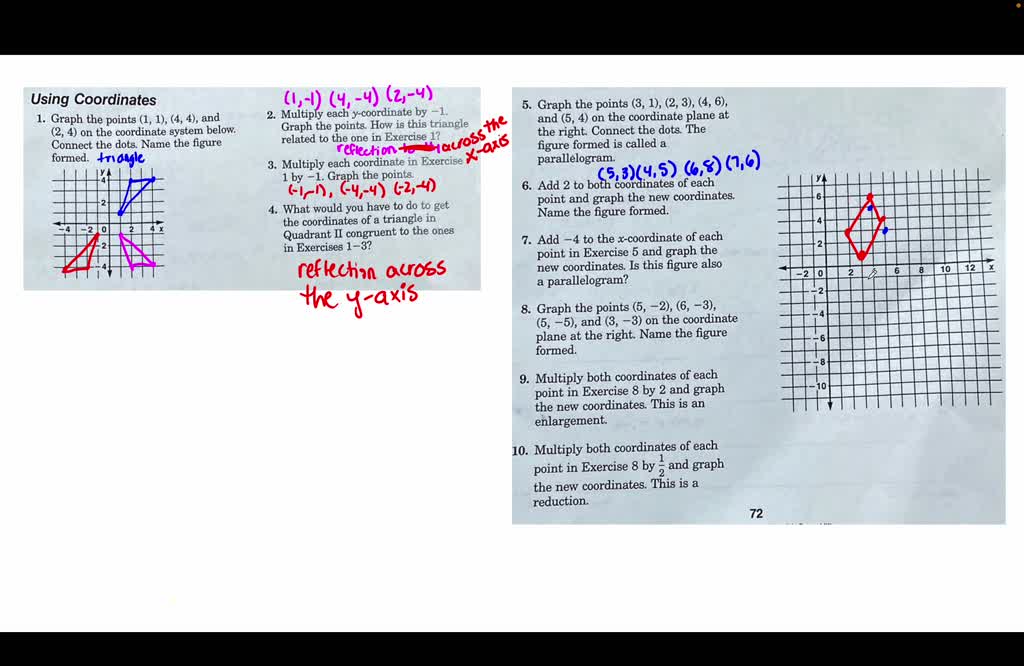 Using Coordinates
1. Graph the points (1, 1), (4, 4), and
(2, 4) on the coordinate system below.
Connect the dots. Name the figure
formed. triangle
y
4
2
-4 -2 0 2 4 x
-2
-4
(1,-1) (4,-4) (2,-4)
2. Multiply each y-coordinate by −1.
Graph the points. How is this triangle
related to the one in Exercise 1?
reflection across the
x-axis
3. Multiply each coordinate in Exercise
1 by −1. Graph the points.
(-1,-1), (-4,-4) (-2,-4)
4. What would you have to do to get
the coordinates of a triangle in
Quadrant II congruent to the ones
in Exercises 1–3?
reflection across
the y-axis
5. Graph the points (3, 1), (2, 3), (4, 6),
and (5, 4) on the coordinate plane at
the right. Connect the dots. The
figure formed is called a
parallelogram.
(5,3)(4,5) (6,8) (7,6)
6. Add 2 to both coordinates of each
point and graph the new coordinates.
Name the figure formed.
7. Add −4 to the x-coordinate of each
point in Exercise 5 and graph the
new coordinates. Is this figure also
a parallelogram?
8. Graph the points (5, −2), (6, −3),
(5, −5), and (3, −3) on the coordinate
plane at the right. Name the figure
formed.
9. Multiply both coordinates of each
point in Exercise 8 by 2 and graph
the new coordinates. This is an
enlargement.
10. Multiply both coordinates of each
point in Exercise 8 by 1/2 and graph
the new coordinates. This is a
reduction.
y
6
4
2
-2 0 2 6 8 10 12 x
-2
-4
-6
-8
-10
72